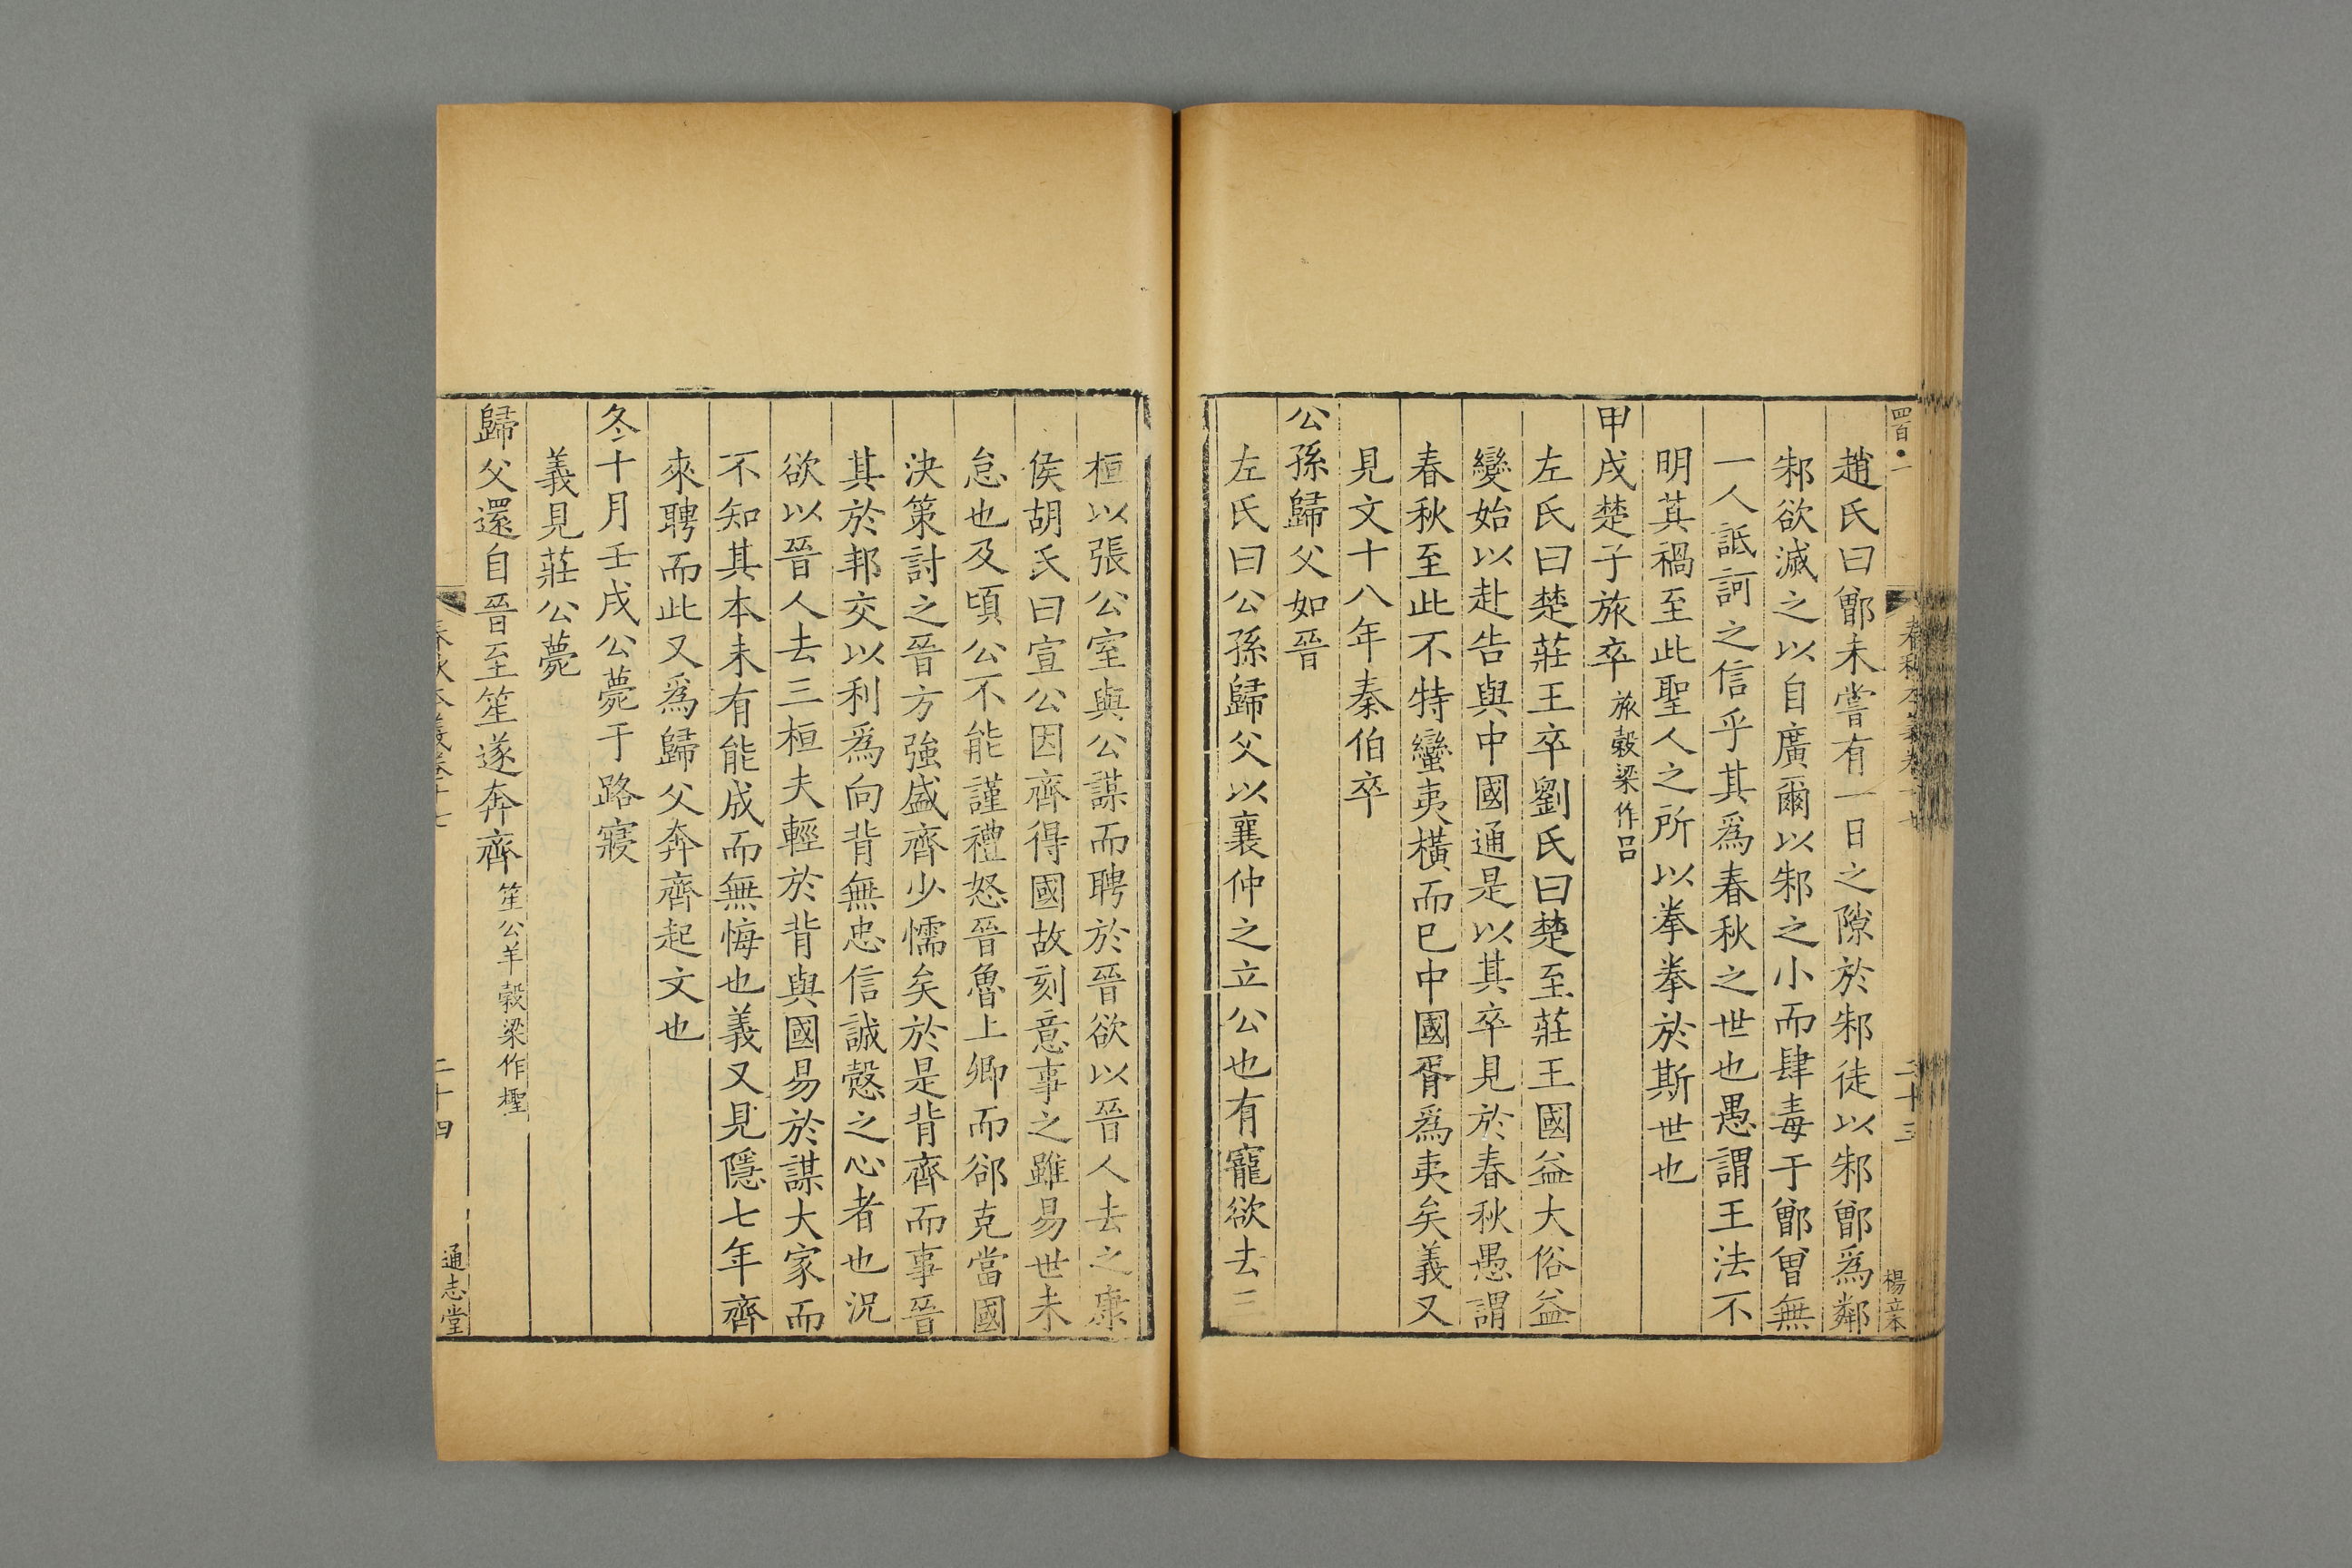 四百●一
春秋本義卷十七
二十三
楊立本
趙氏曰鄫未嘗有一日之隙於邾徒以邾鄫爲鄰
邾欲滅之以自廣爾以邾之小而肆毒于鄫曾無
一人詆訶之信乎其爲春秋之世也愚謂王法不
明其禍至此聖人之所以拳拳於斯世也
甲戌楚子旅卒旅穀梁作吕
左氏曰楚莊王卒劉氏曰楚至莊王國益大俗益
變始以赴告與中國通是以其卒見於春秋愚謂
春秋至此不特蠻夷橫而已中國胥爲夷矣義又
見文十八年秦伯卒
公孫歸父如晉
左氏曰公孫歸父以襄仲之立公也有寵欲去三
桓以張公室與公謀而聘於晉欲以晉人去之康
侯胡氏曰宣公因齊得國故刻意事之雖易世未
怠也及頃公不能謹禮怒晉魯上卿而郤克當國
決策討之晉方強盛齊少懦矣於是背齊而事晉
其於邦交以利爲向背無忠信誠慤之心者也況
欲以晉人去三桓夫輕於背與國易於謀大家而
不知其本未有能成而無悔也義又見隱七年齊
來聘而此又爲歸父奔齊起文也
冬十月壬戌公薨于路寢
義見莊公薨
歸父還自晉至笙遂奔齊笙公羊穀梁作檉
春秋本義卷十七
二十四
通志堂